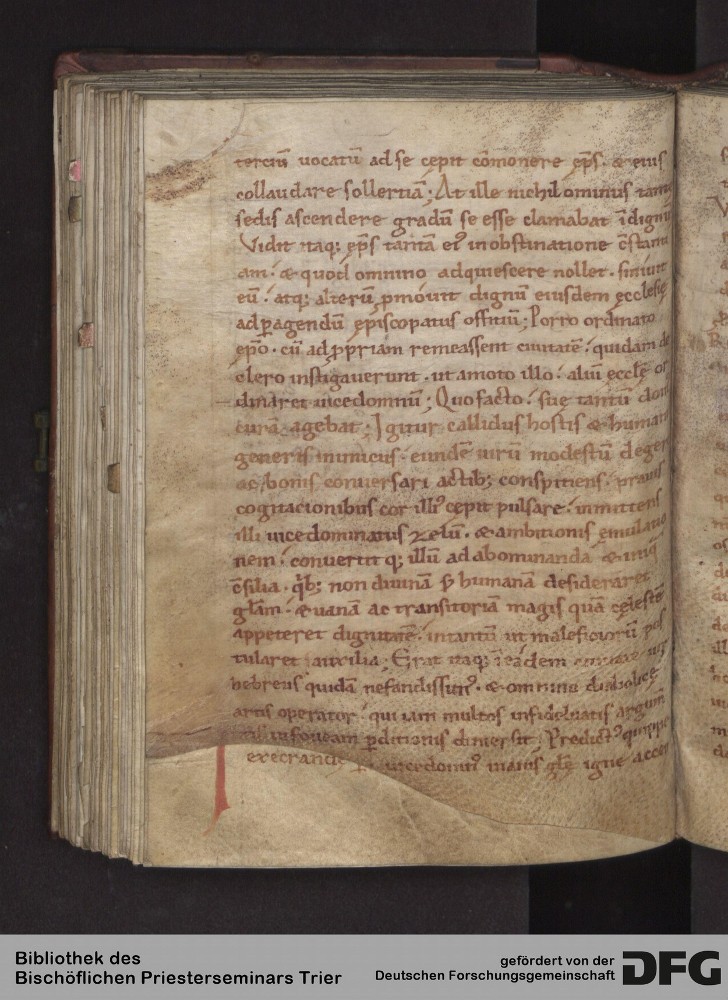 terciū uocatū ad se cepit cōmonere ep̄s. & eius
collaudare sollertiā; At ille nichil ominus tanti
sedis ascendere gradū se esse clamabat īdignū
Vidit itaq; ep̄s tantā ei' in obstinatione c̄stanti
am. & quod omnino adquiescere nollet. siniuit
eū. atq; alterū p̄mouit dignū eiusdem ecclesię
ad ꝑagendū ep̄iscopatus offitiū; Porro ordinato
ep̄o. cū ad ꝓpriam remeassent ciuitatē. quidam de
clero instigauerunt. ut amoto illo. aliū eccłę or
dinaret uicedomnū; Quo facto. suę tantū dom
curā agebat; Igitur callidus hostis & humani
generis inimicus. eundē uirū modestū deger
ac bonis conuersari actib; conspitiens. prauis
cogitacionibus cor illi' cepit pulsare. inmittens
illi uicedominatus zelū. & ambitionis ęmulatio
nem. conuertitq; illū ad abominanda & iniq
c̄silia. qb; non diuinā s; humanā desideraret
głam. & uanā ac transitoriā magis quā cęlestē
appeteret dignitatē. intantū ut maleficiorū pos
tularet auxilia; Erat itaq; ī eadem ciuitate
hebreus quidā nefandissim'. & omnino diabolicę
artis operator. qui iam multos infidelitatis argum
in foueam ꝑditionis dimersit; Predict' quippe
execrande uicedomin' inanis głę igne accen
Bibliothek des
Bischöflichen Priesterseminars Trier
gefördert von der
Deutschen Forschungsgemeinschaft
DFG